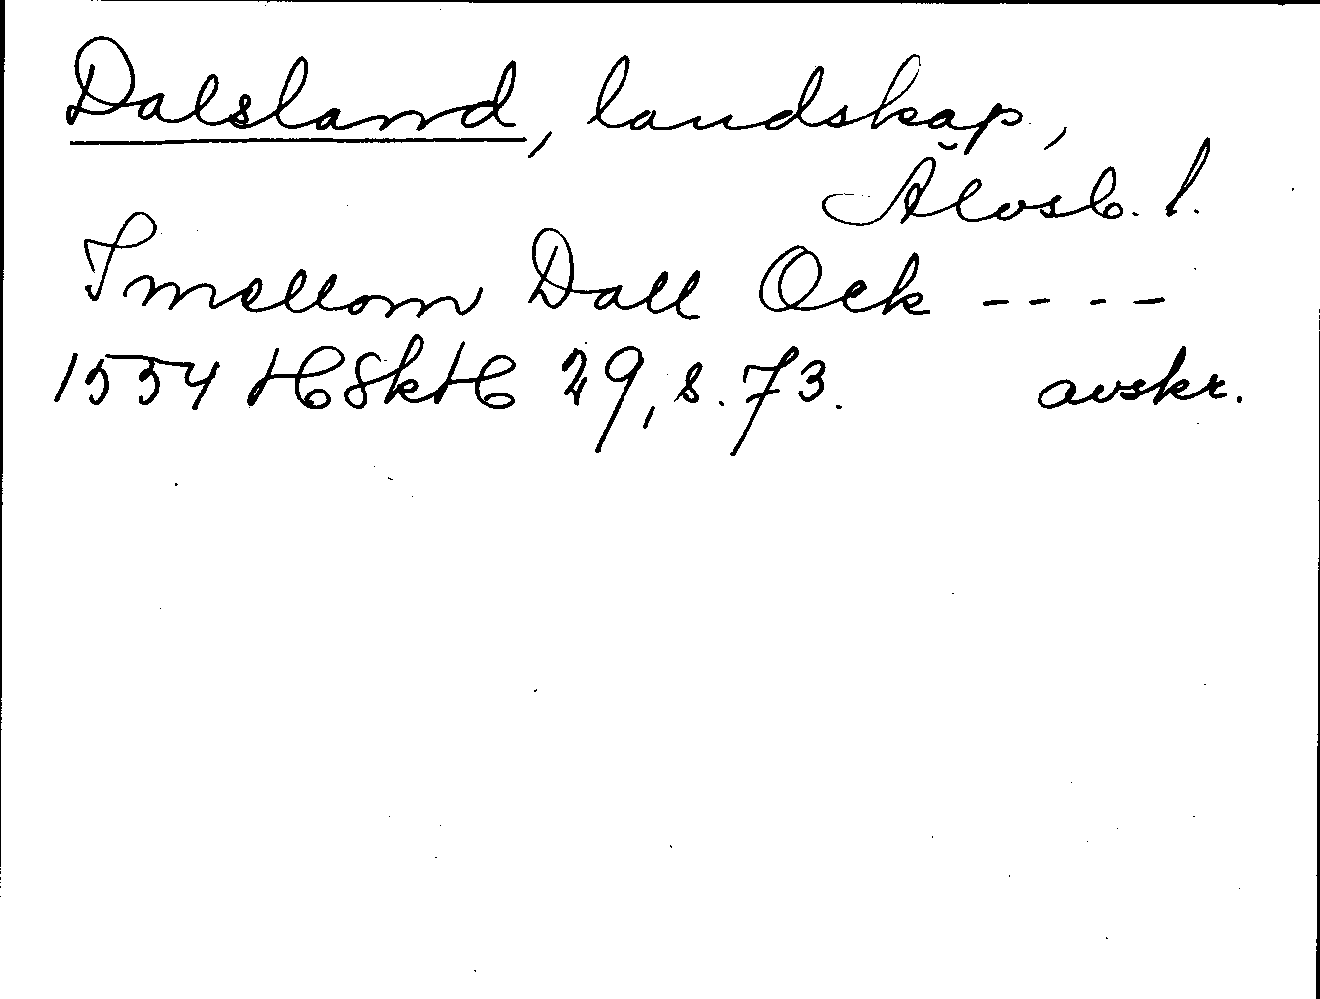 Dalsland, landskap,
Älvsb. l.
Imellom Dall Ock ----
1554 HSkH 29, s. 73. avskr.